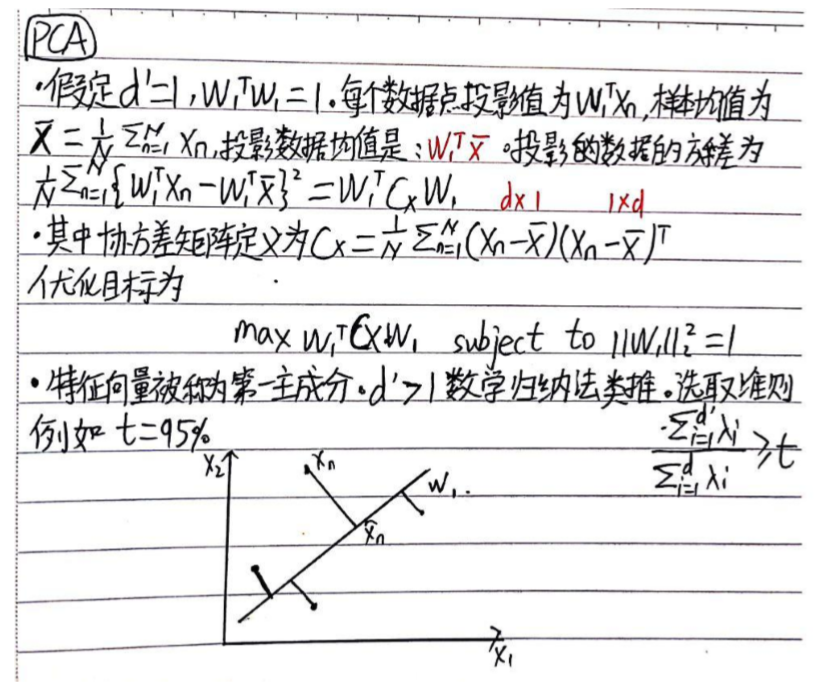 PCA
·假定d'=1，W₁ᵀW₁=1。每个数据点投影值为W₁ᵀXn，样本均值为
X̄=1/N Σₙ₌₁ᴺ Xn，投影数据均值是：W₁ᵀX̄。投影的数据的方差为
1/N Σₙ₌₁ᴺ{W₁ᵀXn-W₁ᵀX̄}²=W₁ᵀCxW₁ d×1 1×d
·其中协方差矩阵定义为Cx=1/N Σₙ₌₁ᴺ(Xn-X̄)(Xn-X̄)ᵀ
优化目标为
max W₁ᵀCxW₁ subject to ||W₁||₂²=1
·特征向量被称为第一主成分。d'>1数学归纳法类推。选取准则
例如 t=95% Σᵢ₌₁ᵈ'λi / Σᵢ₌₁ᵈλi ≥t
X₂ Xn W₁.
x̃n
X₁